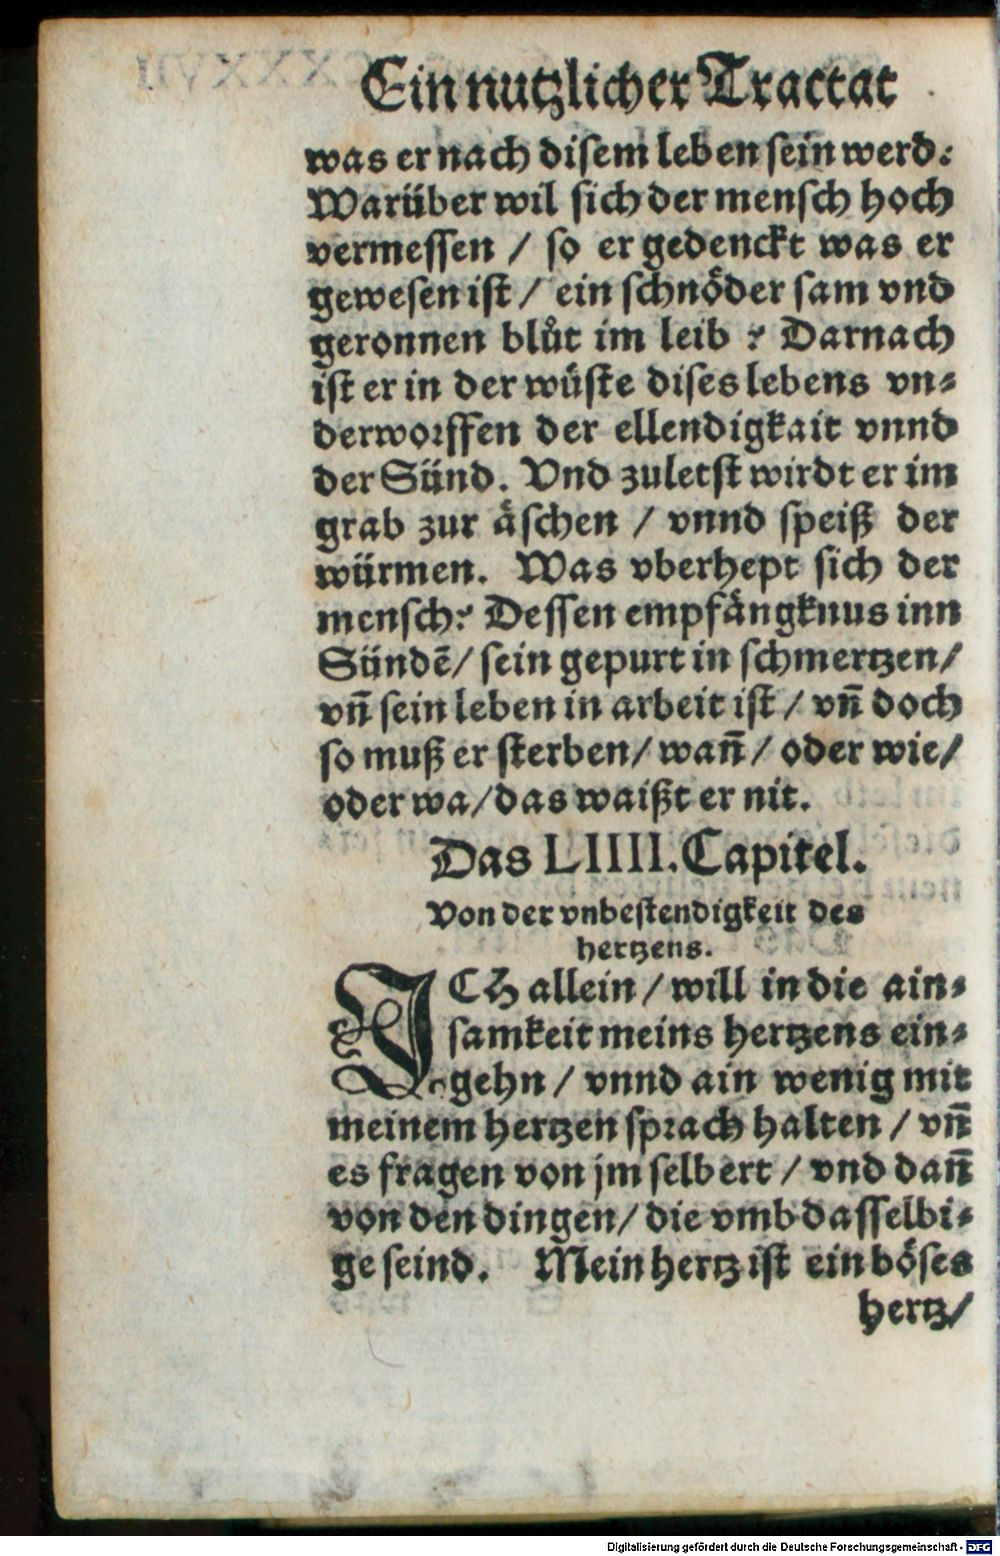 Ein nutzlicher Tractat
was er nach disem leben sein werd:
Warüber wil sich der mensch hoch
vermessen / so er gedenckt was er
gewesen ist / ein schnöder sam vnd
geronnen blůt im leib ? Darnach
ist er in der wüste dises lebens vn⸗
derworffen der ellendigkait vnnd
der Sünd. Vnd zuletst wirdt er im
grab zur äschen / vnnd speiß der
würmen. Was vberhept sich der
mensch? Dessen empfängknus inn
Sündẽ/ sein gepurt in schmertzen/
vñ sein leben in arbeit ist / vñ doch
so muß er sterben/ wañ / oder wie/
oder wa/ das waißt er nit.
Das LIIII. Capitel.
Von der vnbestendigkeit des
hertzens.
ICH allein / will in die ain⸗
samkeit meins hertzens ein⸗
gehn / vnnd ain wenig mit
meinem hertzen sprach halten / vñ
es fragen von jm selbert / vnd dañ
von den dingen/ die vmb dasselbi⸗
ge seind. Mein hertz ist ein böses
hertz/
Digitalisierung gefördert durch die Deutsche Forschungsgemeinschaft - DFG